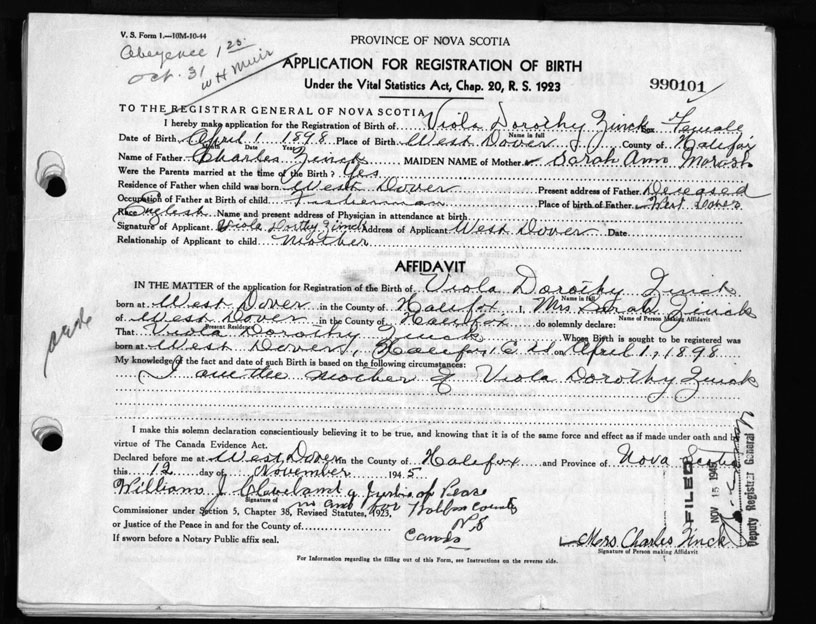 V. S. Form 1.—10M-10-44
Abeyence 1 25.
Oct. 31 W H Muir
PROVINCE OF NOVA SCOTIA
APPLICATION FOR REGISTRATION OF BIRTH
Under the Vital Statistics Act, Chap. 20, R. S. 1923
990101
TO THE REGISTRAR GENERAL OF NOVA SCOTIA
I hereby make application for the Registration of Birth of Viola Dorothy Zinck Sex Female
Name in full
Date of Birth April 1 1898 Place of Birth West Dover County of Halifax
Month Date Year
Name of Father Charles Zinck MAIDEN NAME of Mother Sarah Ann
Were the Parents married at time of the Birth? Yes
Residence of Father when child was born West Dover Present address of Father Deceased
Occupation of Father at Birth of child Fisherman Place of birth of Father West Dover
Race English Name and present address of Physician in attendance at birth
Signature of Applicant Viola Dorthy Zinck Address of Applicant West Dover Date
Relationship of Applicant to child Mother
AFFIDAVIT
IN THE MATTER of the application for Registration of the Birth of Viola Dorothy Zinck
Name in full
born at West Dover in the County of Halifax I, Mrs Sarah Zinck
Name of Person Making Affidavit
of West Dover in the County of Halifax do solemnly declare:
Present Residence
That Viola Dorothy Zinck Whose Birth is sought to be registered was
born at West Dover, Halifax Co on April 1, 1898
My knowledge of the fact and date of such Birth is based on the following circumstances:
I am the mother of Viola Dorothy Zinck
I make this solemn declaration conscientiously believing it to be true, and knowing that it is of the same force and effect as if made under oath and by
virtue of The Canada Evidence Act.
Declared before me at West Dover in the County of Halifax and Province of Nova Scotia
this 12 day of November 1945
William J Cleveland a Justis of Pease
Signature of
in and for Halifax County
Commissioner under Section 5, Chapter 38, Revised Statutes, 1923,
or Justice of the Peace in and for the County of N S
If sworn before a Notary Public affix seal.
Mrs Charles Zinck
Signature of Person making Affidavit
For Information regarding the filling out of this Form, see Instructions on the reverse side.
FILED
NOV 15 1945
Deputy Registrar General